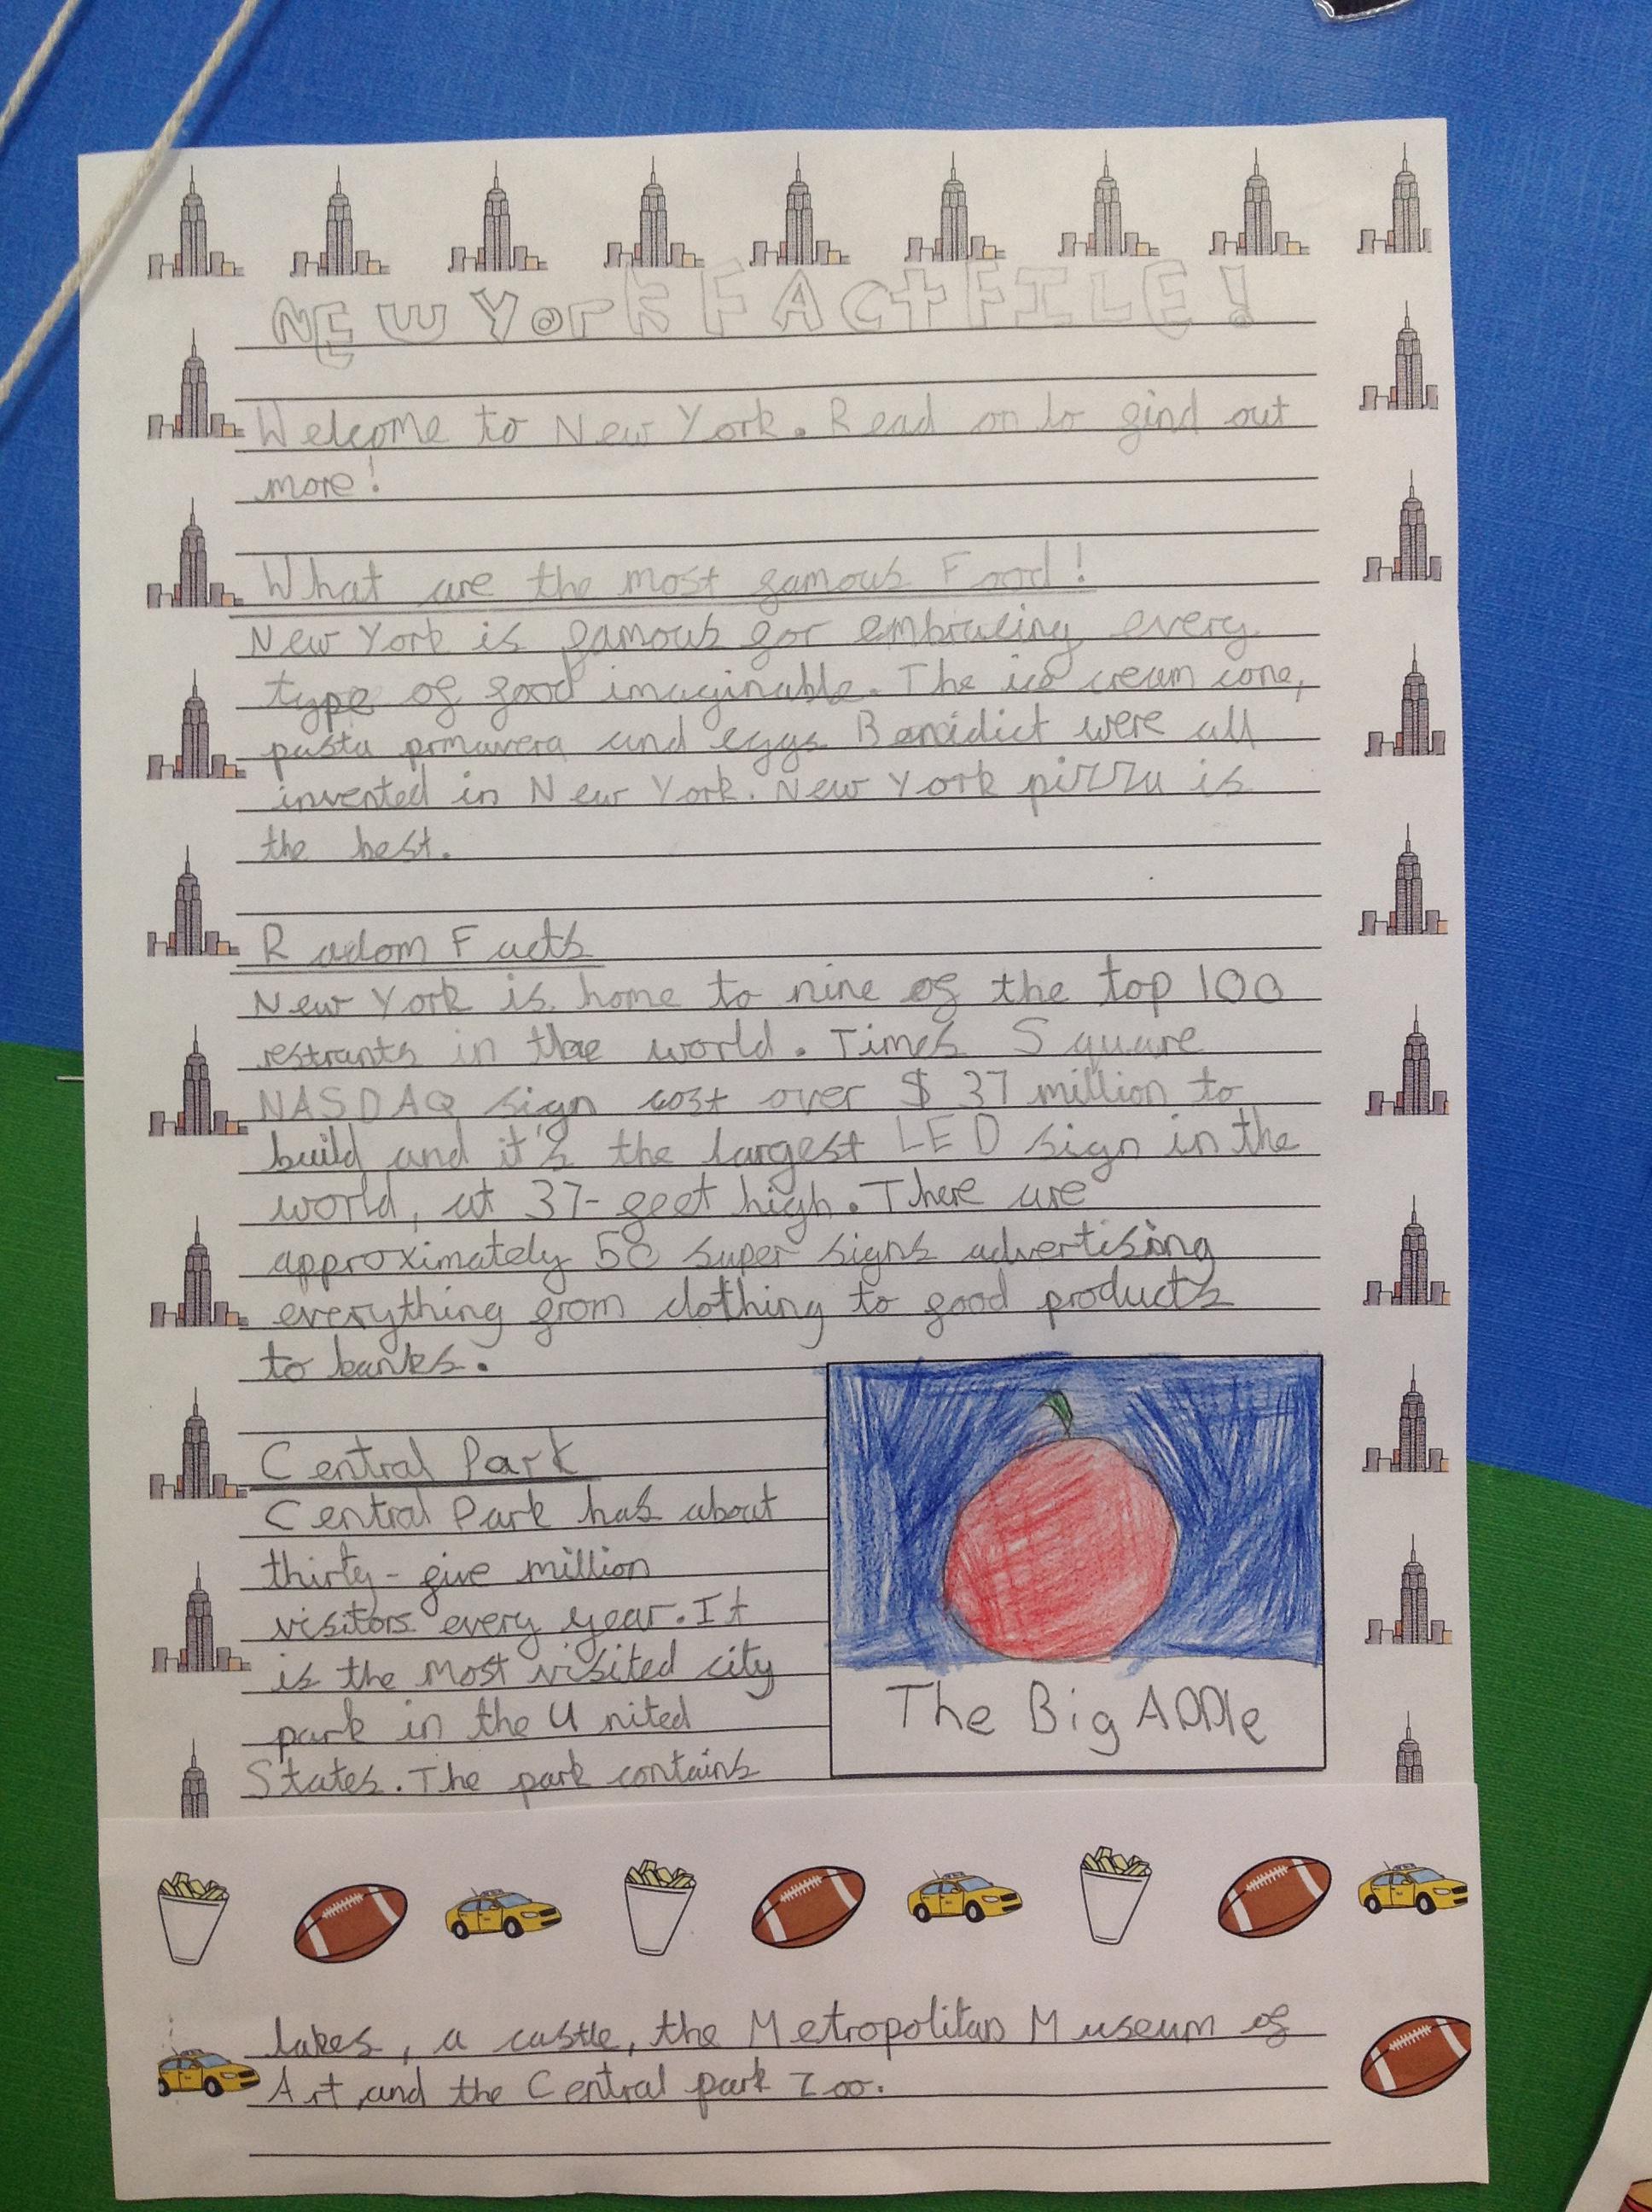 NEW York FACt FILE!
Welcome to New York. Read on to find out
more!
What are the most famous Food!
New York is famous for embracing every
type of food imaginable. The ice cream cone,
pasta primavera and eggs Benidict were all
invented in New York. New York pizza is
the best.
Radom Facts
New York is home to nine of the top 100
restrants in the world. Times Square
NASDAQ sign cost over $37 million to
build and it's the largest LED sign in the
world, at 37-feet high. There are
approximately 50 super signs advertising
everything from clothing to food products
to banks.
Central Park
Central Park has about
thirty-five million
visitors every year. It
is the most visited city
park in the United
States. The park contains
The Big Apple
lakes, a castle, the Metropolitan Museum of
Art and the Central park Zoo.